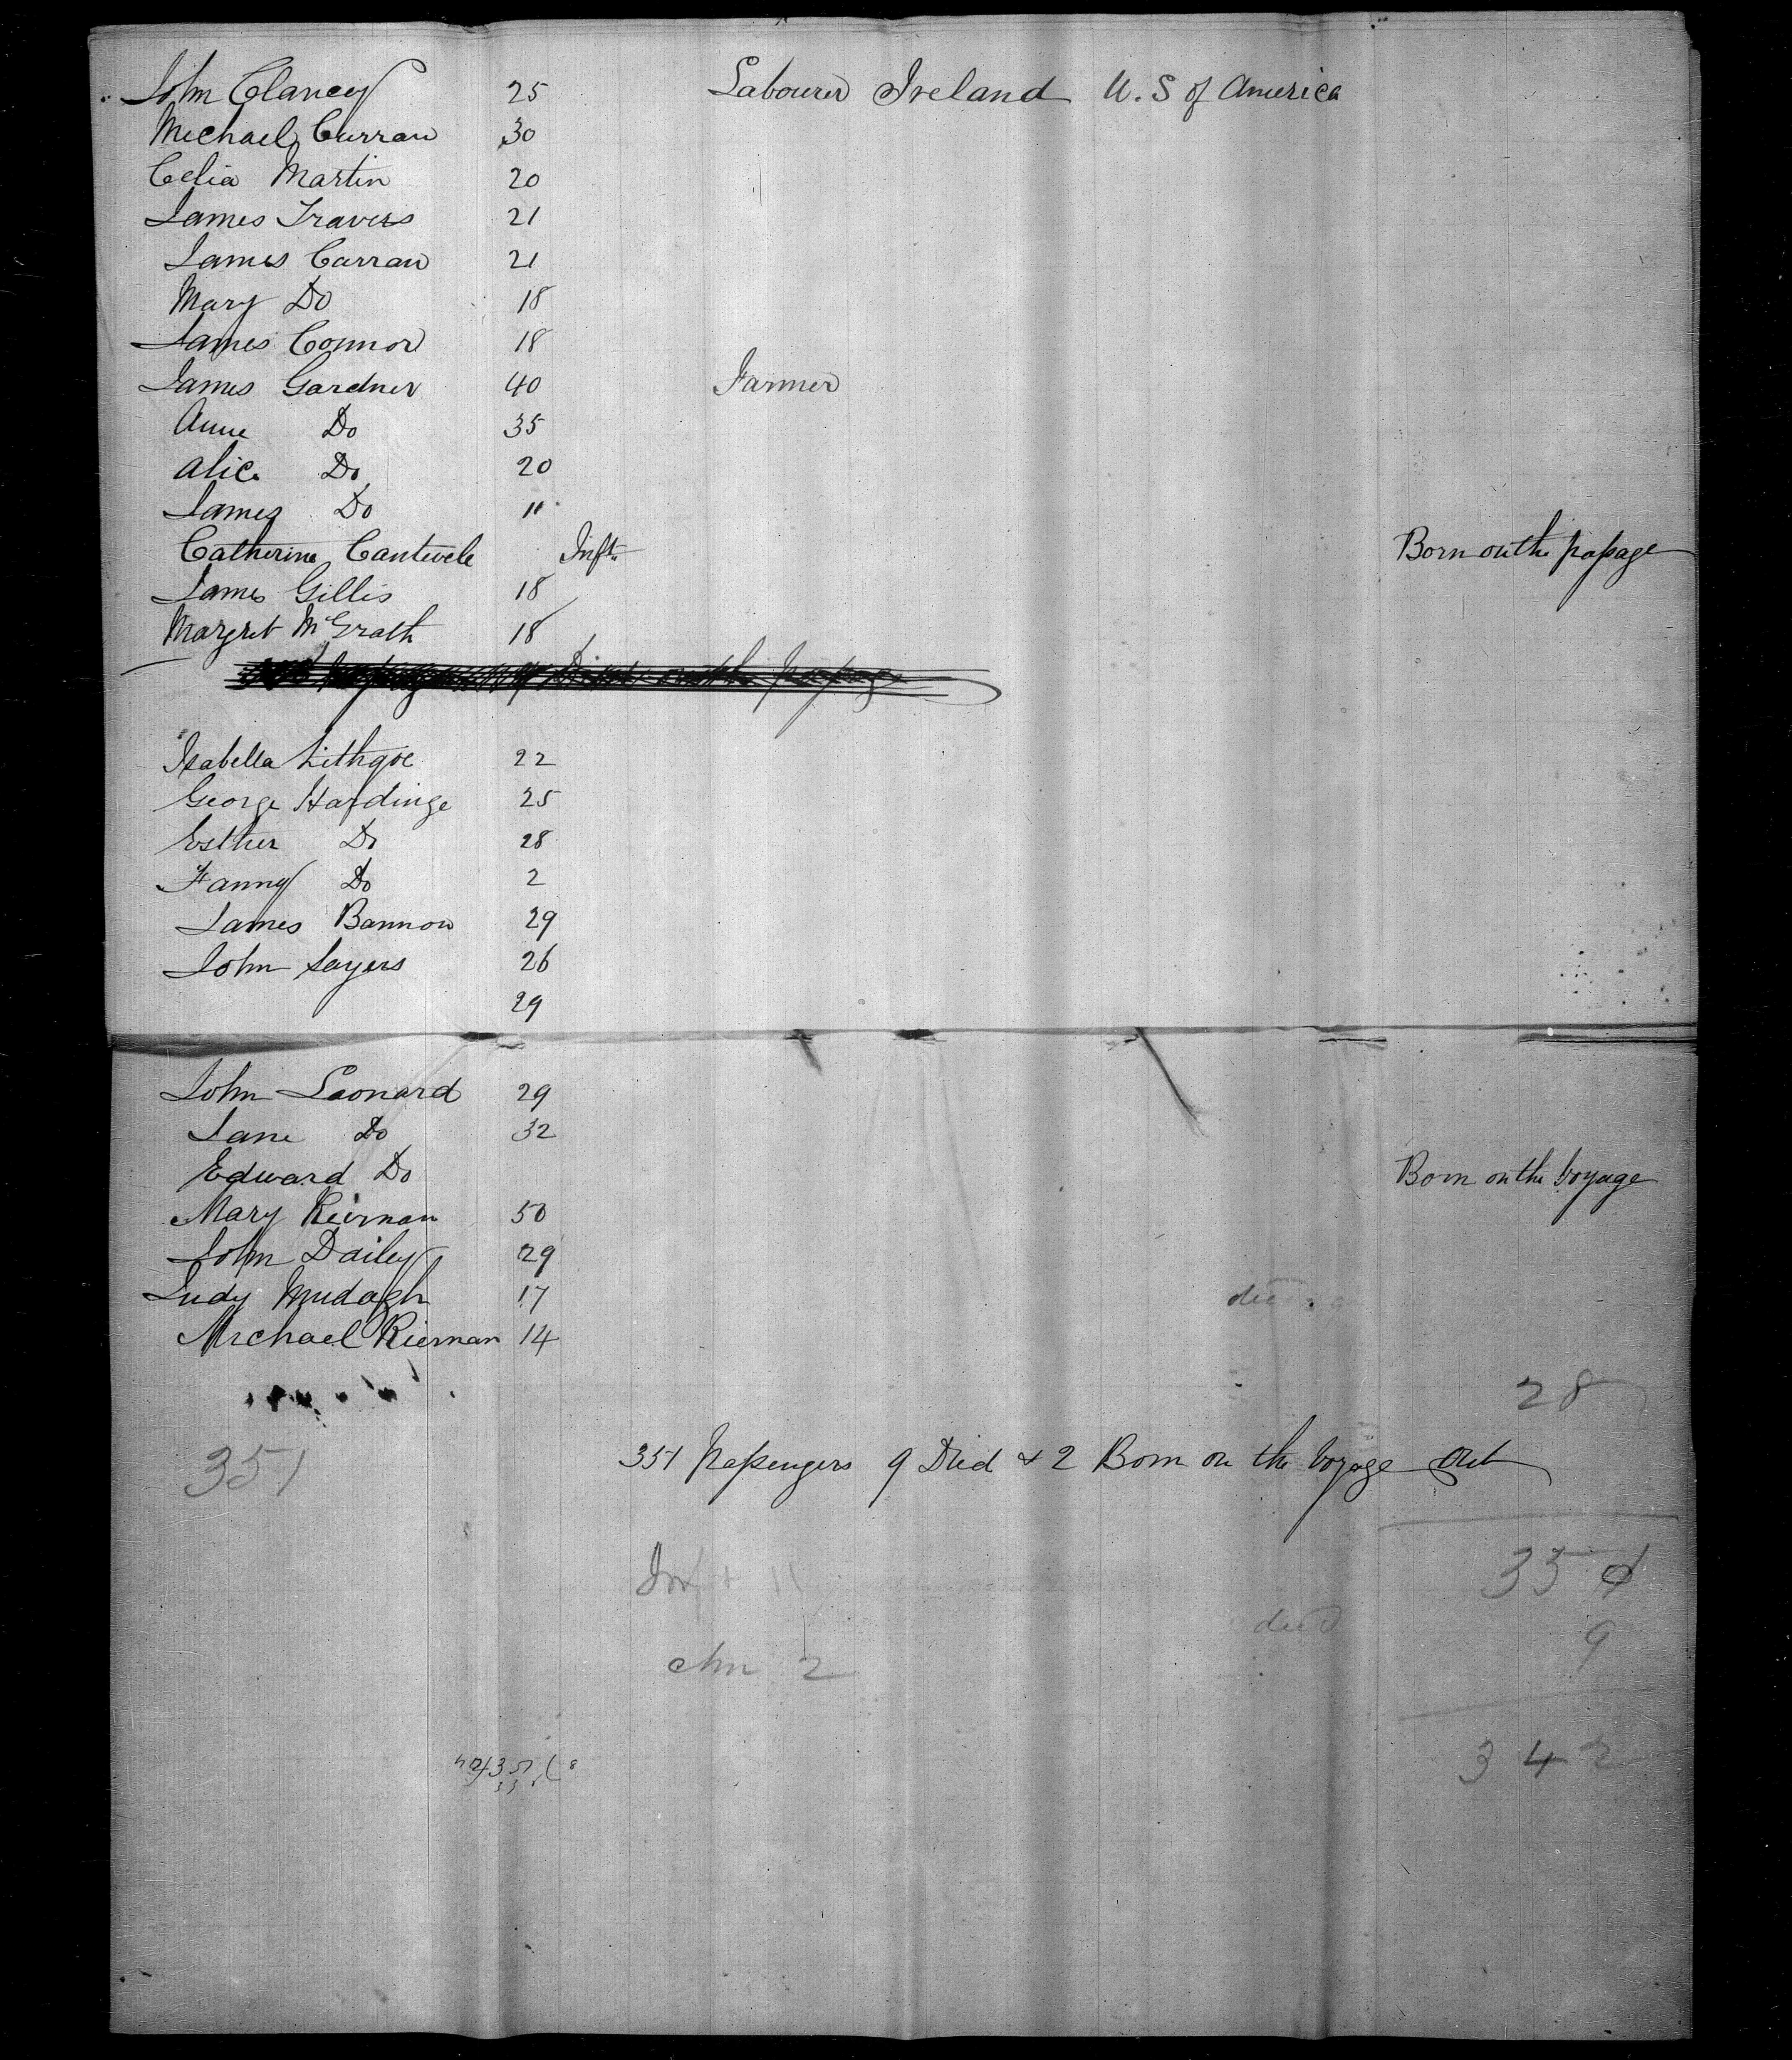 John Clancey 25 Labourer Ireland U. S of America
Michael Curran 30
Celia Martin 20
James Travers 21
James Curran 21
Mary Do 18
James Connor 18
James Gardner 40 Farmer
Anne Do 35
Alice Do 20
James Do 11
Catherine Cantwell Inft Born on the passage
James Gillis 18
Margret McGrath 18
Died on the passage
Isabella Lithgoe 22
George Hardinge 25
Esther Do 28
Fanny Do 2
James Bannon 29
John Sayers 26
29
John Leonard 29
Jane Do 32
Edward Do Born on the Voyage
Mary Kiernan 50
John Dailey 29
Judy Mudagh 17
Michael Kiernan 14
28
351
351 Passengers 9 Died & 2 Born on the Voyage Out
Inft 11
died 9
chn 2
342